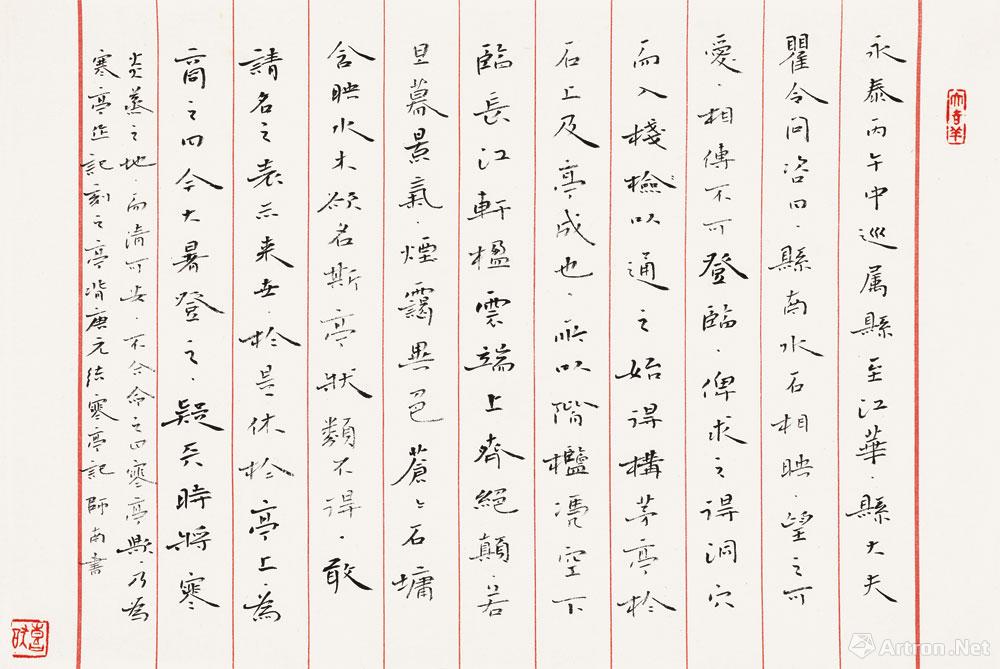 永泰丙午中巡属縣至江華縣大夫
瞿令問咨曰縣南水石相映望之可
愛相傳不可登臨俾求之得洞穴
而入棧檢以通之始得構茅亭於
石上及亭成也所以階檻憑空下
臨長江軒楹雲端上齊絕顛若
旦暮景氣煙靄異色蒼〻石墉
含映水木欲名斯亭狀類不得敢
請名之表示来世於是休於亭上為
商之曰今大暑登之疑天時將寒
炎蒸之地而清可安不合命之曰寒亭歟乃為
寒亭作記刻之亭背唐元结寒亭記師南書
Artron.Net